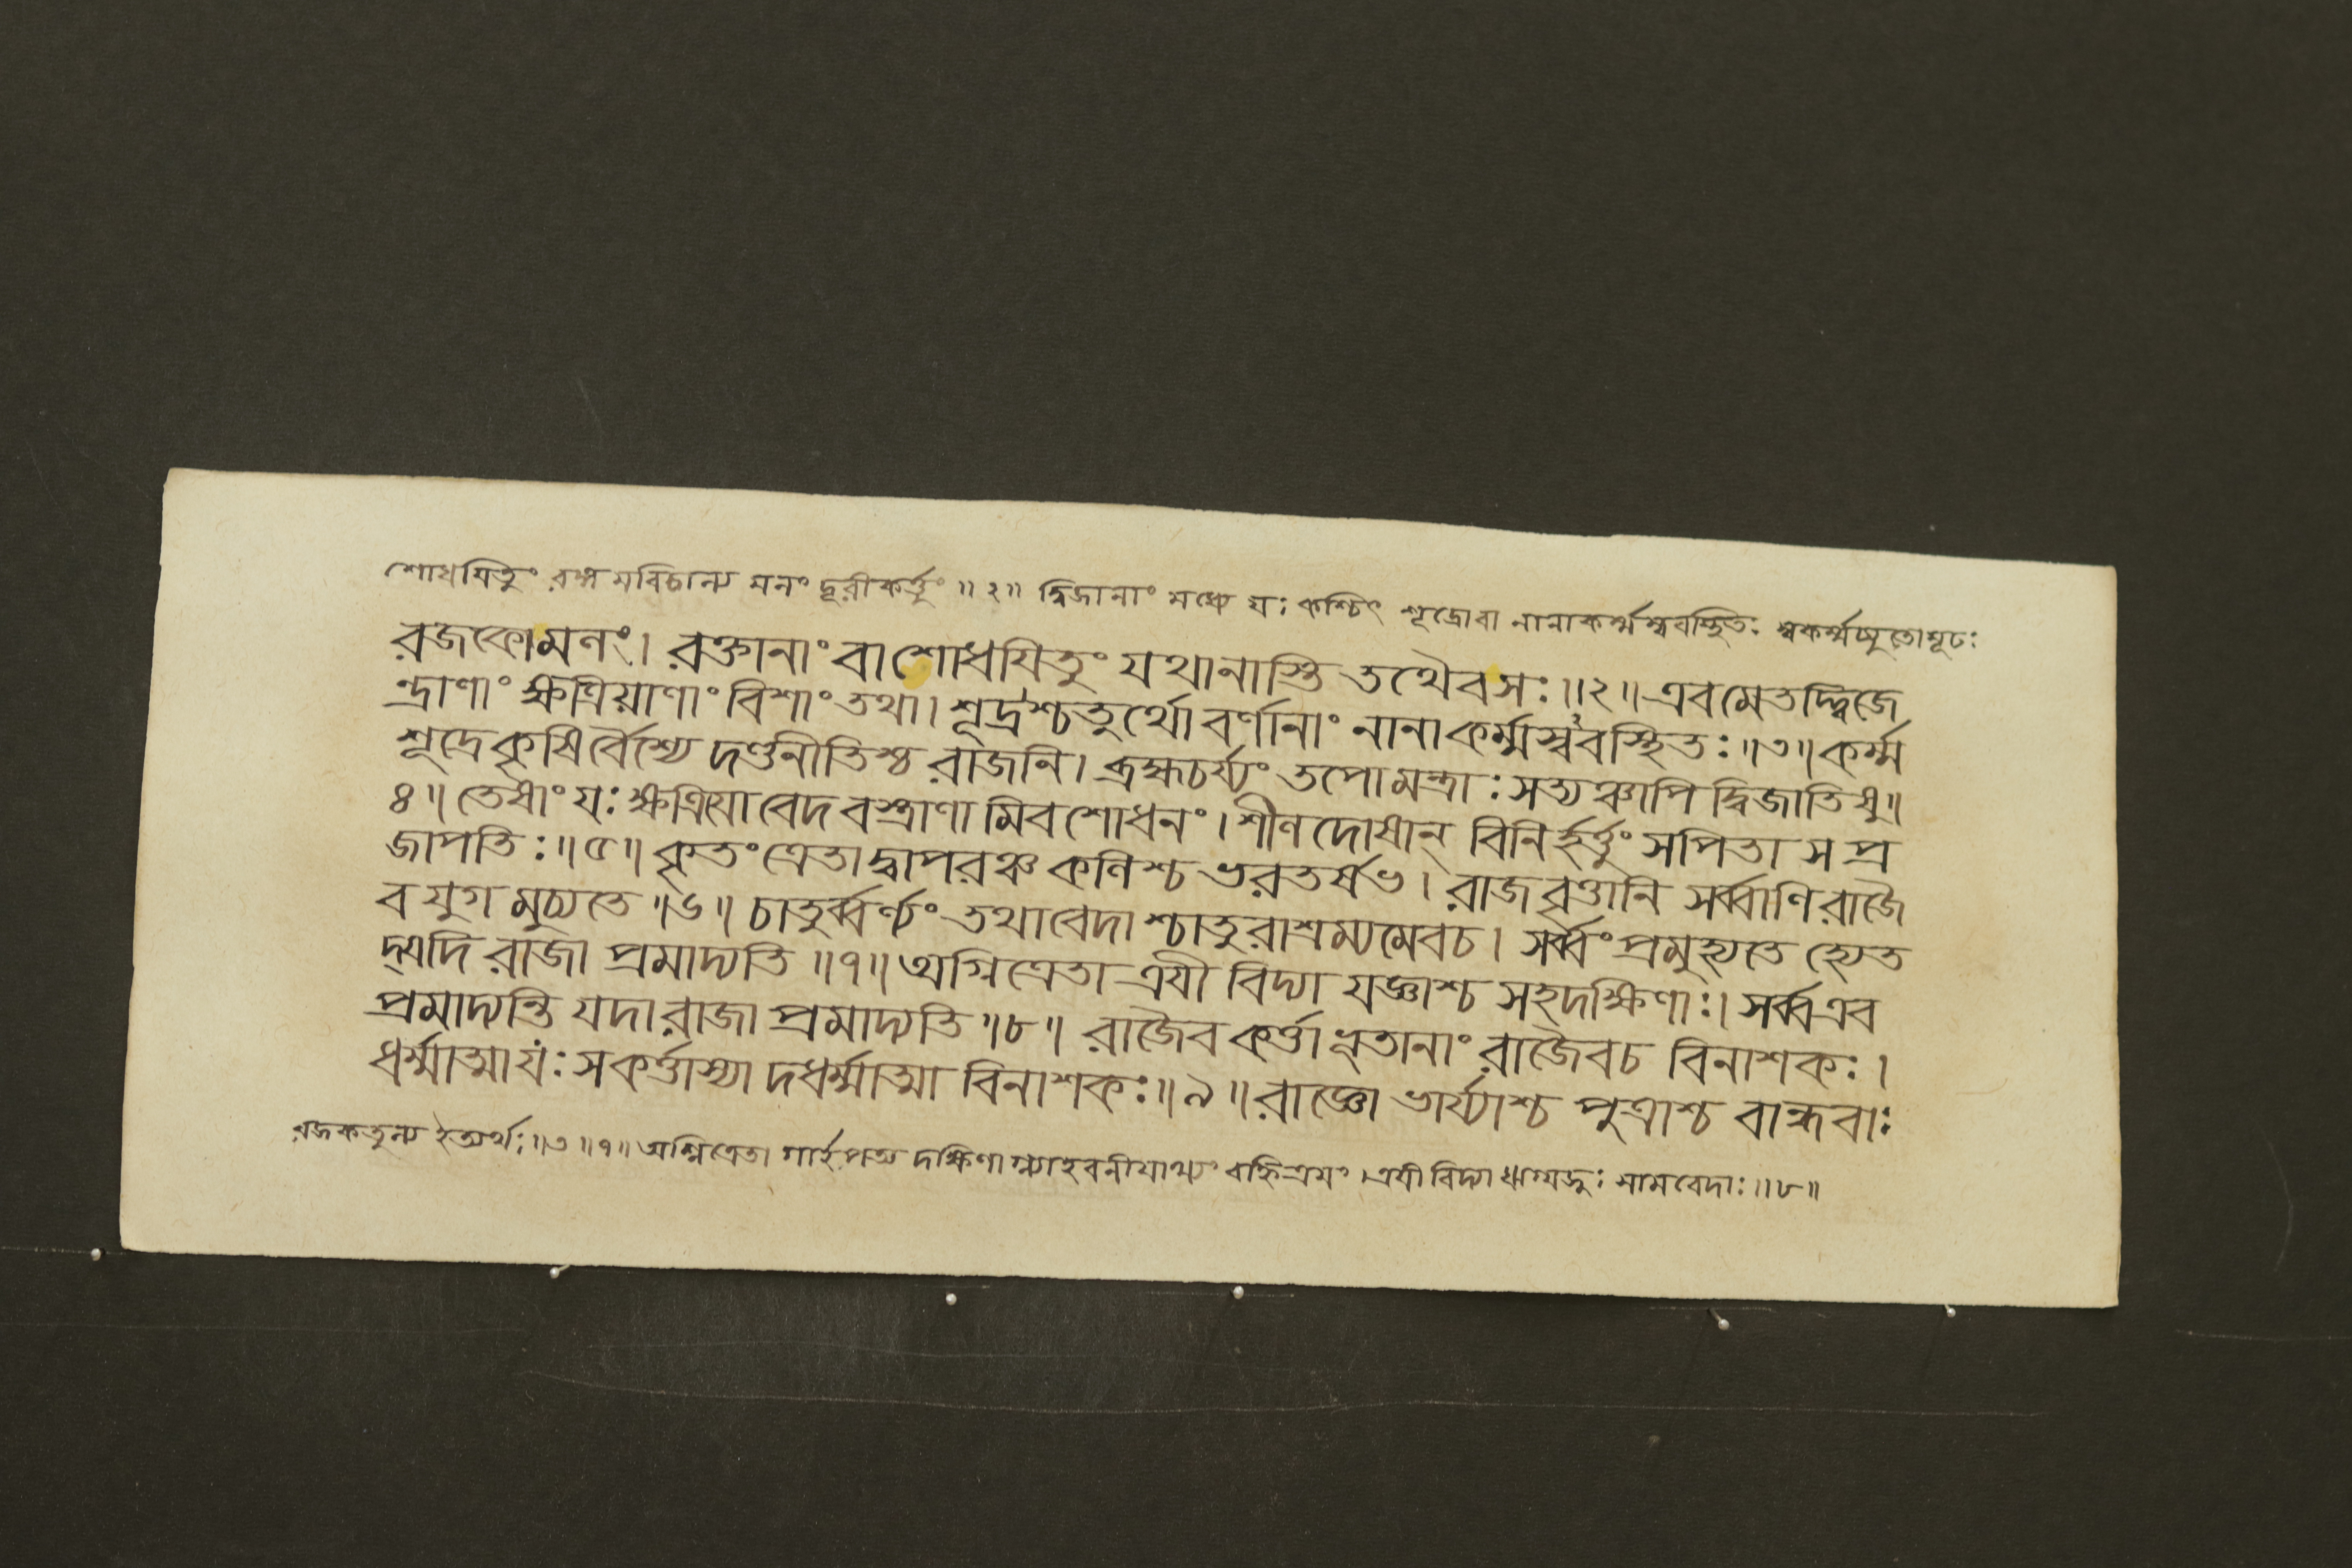 শোধযিতুং রঙ্গমবিচাল্য মলং দূরীকর্ত্তুং ॥২॥ দ্বিজানাং মধ্যে যঃ কশ্চিৎ শূদ্রোবা নানাকর্ম্মস্ববস্থিতঃ স্বকর্ম্মচ্যুতোমূঢঃ
রজকোমলং। রক্তানাং বাশোধযিতুং যথানাস্তি তথৈবসঃ॥২॥এবমেতদ্দ্বিজে
ন্দ্রাণাং ক্ষত্রিয়াণাং বিশাং তথা। শূদ্রশ্চতুর্থো বর্ণানাং নানাকর্ম্মস্ববস্থিতঃ॥৩॥কর্ম্ম
শূদ্রেকৃষির্বৈশ্যে দণ্ডনীতিশ্চ রাজনি। ব্রহ্মচর্য্যং তপোমন্ত্রাঃ সত্যঞ্চাপি দ্বিজাতিষু॥
৪॥ তেষাংযঃ ক্ষত্রিযোবেদ বস্ত্রাণামিবশোধনং। শীলদোষান্ বিনির্হর্ত্তুং সপিতা সপ্র
জাপতিঃ॥৫॥ কৃতংত্রেতাদ্বাপরঞ্চ কলিশ্চ ভরতর্ষভ। রাজবৃত্তানি সর্ব্বাণিরাজৈ
বযুগমুচ্যতে॥৬॥ চাতুর্ব্বর্ণ্যং তথাবেদাশ্চাতুরাশ্রম্যমেবচ। সর্ব্বংপ্রমুহ্যতে হ্যেত
দ্যদি রাজা প্রমাদ্যতি॥৭॥অগ্নিত্রেতা ত্রযীবিদ্যা যজ্ঞাশ্চ সহদক্ষিণাঃ। সর্ব্বএব
প্রমাদ্যন্তি যদারাজা প্রমাদ্যতি॥৮॥ রাজৈবকর্ত্তা ভূতানাং রাজৈবচ বিনাশকঃ।
ধর্ম্মাত্মাযঃ সকর্ত্তাস্যাদধর্ম্মাত্মা বিনাশকঃ॥৯॥রাজ্ঞো ভার্য্যাশ্চ পুত্রাশ্চ বান্ধবাঃ
রজকতুল্য ইত্যর্থঃ॥৩॥৭॥ অগ্নিত্রেতা গার্হপত্য দক্ষিণাগ্ন্যাহবনীযাখ্যং বহ্নিত্রযং।ত্রযীবিদ্যা ঋগ্যজুঃ সামবেদাঃ॥৮॥